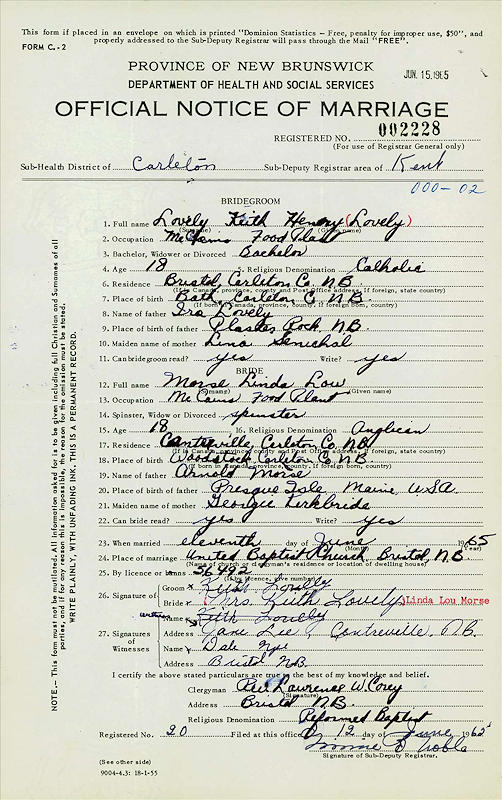 This form if placed in an envelope on which is printed "Dominion Statistics – Free, penalty for improper use, $50", and
properly addressed to the Sub-Deputy Registrar will pass through the Mail "FREE".
FORM C.-2
PROVINCE OF NEW BRUNSWICK
JUN. 15, 1965
DEPARTMENT OF HEALTH AND SOCIAL SERVICES
OFFICIAL NOTICE OF MARRIAGE
REGISTERED NO. 002228
(For use of Registrar General only)
Sub-Health District of Carleton Sub-Deputy Registrar area of Kent
000-02
BRIDEGROOM
1. Full name Lovely Keith Henery (Lovely)
(Surname) (Given name)
2. Occupation McCains Food Plant
3. Bachelor, Widower or Divorced Bachelor
4. Age 18 5. Religious Denomination Catholic
6. Residence Bristol, Carleton Co. N.B.
(If in Canada, province, county and Post Office address. If foreign, state country)
7. Place of birth Bath, Carleton Co. N.B.
(If born in Canada, province, county. If foreign born, country)
8. Name of father Ira Lovely
9. Place of birth of father Plaster Rock, N.B.
10. Maiden name of mother Lina Senichal
11. Can bridegroom read? yes Write? yes
BRIDE
12. Full name Morse Linda Lou
(Surname) (Given name)
13. Occupation McCains Food Plant
14. Spinster, Widow or Divorced spinster
15. Age 18 16. Religious Denomination Anglican
17. Residence Centreville, Carleton Co. N.B.
(If in Canada, province, county and Post Office address. If foreign, state country)
18. Place of birth Woodstock, Carleton Co. N.B.
(If born in Canada, province, county. If foreign, country)
19. Name of father Arnold Morse
20. Place of birth of father Presque Isle, Maine, U.S.A.
21. Maiden name of mother Georgie Kirkbride
22. Can bride read? yes Write? yes
23. When married eleventh day of June 1965
(Month) (Year)
24. Place of marriage United Baptist Church, Bristol, N.B.
(Name of church or dwelling of residence or location of dwelling house)
25. By licence or banns 56492
(If by licence, give number)
26. Signature of Groom × Keith Lovely
Bride × (Mrs. Keith Lovely) Linda Lou Morse
27. Signature of Witnesses
Name × Keith Lovely
Address Centreville, N.B.
Name Dale
Address Bristol N.B.
I certify the above stated particulars are true to the best of my knowledge and belief.
Clergyman Rev. Lawrence W. Corey
(Signature)
Address Bristol N.B.
Religious Denomination Reformed Baptist
Registered No. 20 Filed at this office 12 day of June 1965
Signature of Sub-Deputy Registrar.
(See other side)
9004-4.3: 18-1-55
NOTE.— This form must not be mutilated. All information asked for is to be given including full Christian and Surnames of all
parties, and if for any reason this is impossible, the reason for the omission must be stated.
WRITE PLAINLY, WITH UNFADING INK, THIS IS A PERMANENT RECORD.